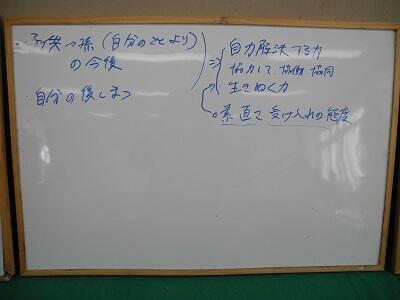 子供々孫（自分のことより）
の今後
自分の後しまつ
自力解決する力
協力して 協働 協同
生きぬく力
素直で 受け入れの態度